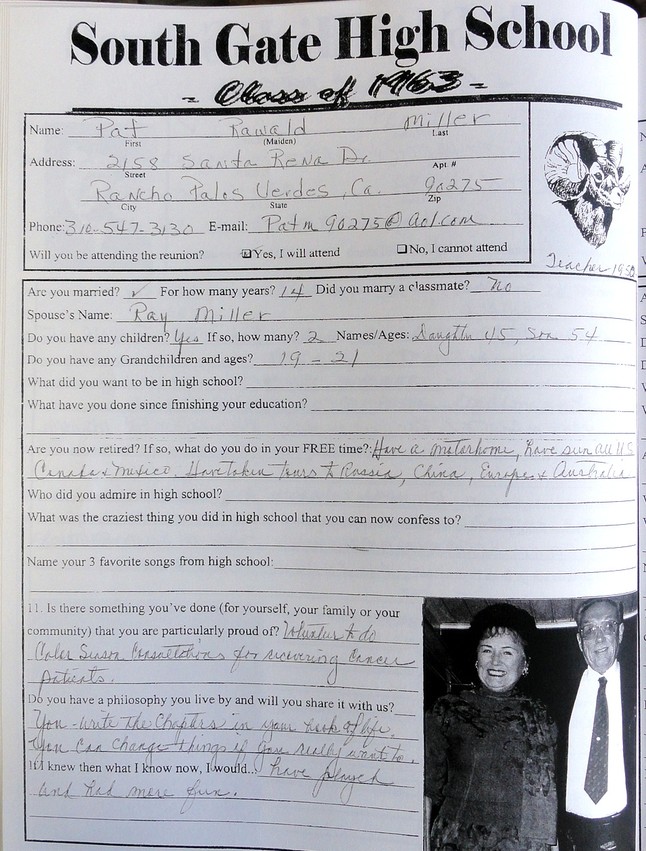 South Gate High School
- Class of 1963 -
Name: Pat Rawald Miller
First (Maiden) Last
Address: 2158 Santa Rena Dr.
Street Apt. #
Rancho Palos Verdes, Ca. 90275
City State Zip
Phone: 310-547-3130 E-mail: Patm90275@aol.com
Will you be attending the reunion? Yes, I will attend No, I cannot attend
Teacher 1950
Are you married? ✓ For how many years? 14 Did you marry a classmate? No
Spouse's Name: Ray Miller
Do you have any children? Yes If so, how many? 2 Names/Ages: Daughter 45, Son 54
Do you have any Grandchildren and ages? 19 - 21
What did you want to be in high school?
What have you done since finishing your education?
Are you now retired? If so, what do you do in your FREE time?: Have a motorhome, have seen all U.S.
Canada & Mexico. Have taken tours to Russia, China, Europe & Australia
Who did you admire in high school?
What was the craziest thing you did in high school that you can now confess to?
Name your 3 favorite songs from high school:
11. Is there something you've done (for yourself, your family or your
community) that you are particularly proud of? Volunteer to do
Color Season Consultations for recovering Cancer
patients.
Do you have a philosophy you live by and will you share it with us?
You - write the Chapters in your book of life.
You Can Change things if you really want to.
If I knew then what I know now, I would... have played
and had more fun.